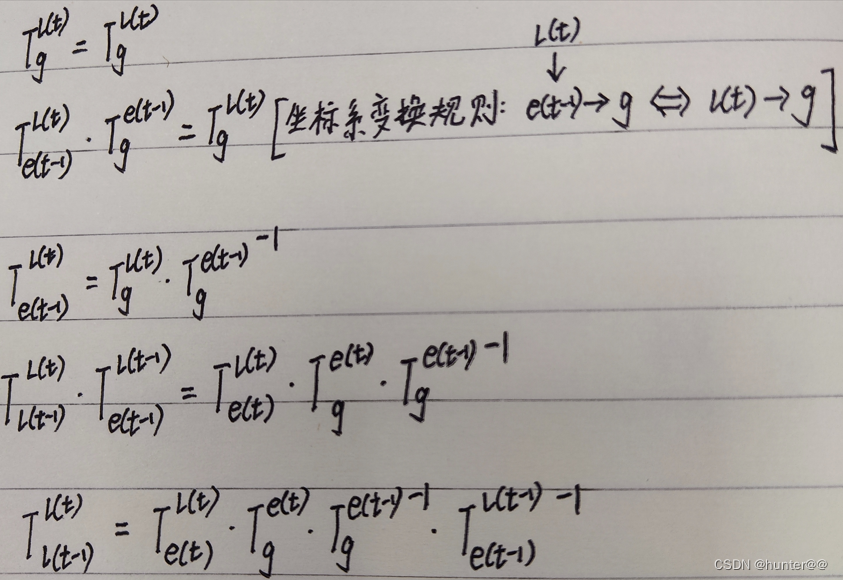 T_g^{L(t)} = T_g^{L(t)}
L(t)
↓
T_{e(t-1)}^{L(t)} · T_g^{e(t-1)} = T_g^{L(t)} [坐标系变换规则: e(t-1)→g ⇔ L(t)→g]
T_{e(t-1)}^{L(t)} = T_g^{L(t)} · T_g^{e(t-1)-1}
T_{L(t-1)}^{L(t)} · T_{e(t-1)}^{L(t-1)} = T_{e(t)}^{L(t)} · T_g^{e(t)} · T_g^{e(t-1)-1}
T_{L(t-1)}^{L(t)} = T_{e(t)}^{L(t)} · T_g^{e(t)} · T_g^{e(t-1)-1} · T_{e(t-1)}^{L(t-1)-1}
CSDN @hunter@@